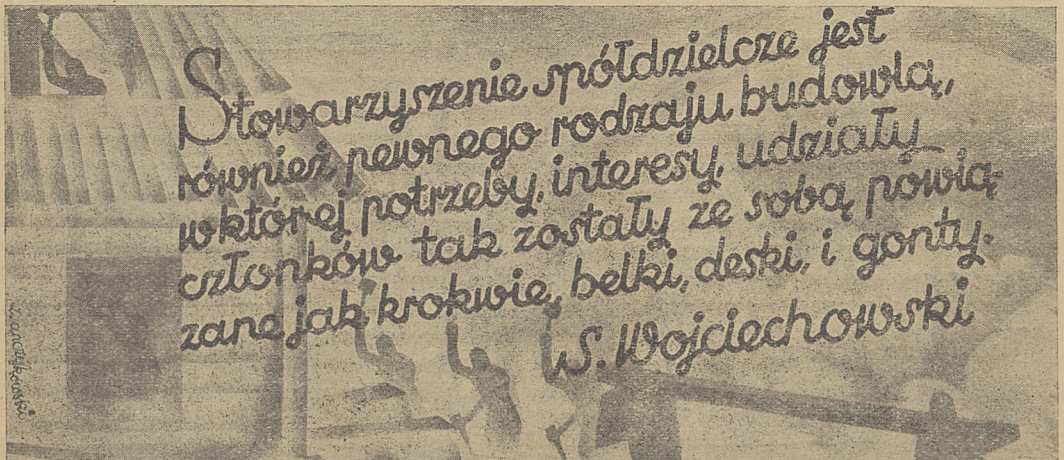 Stowarzyszenie spółdzielcze jest
również pewnego rodzaju budowlą,
w której potrzeby, interesy, udziały
członków tak zostały ze sobą powią-
zane jak krokwie, belki, deski, i gonty.
S. Wojciechowski